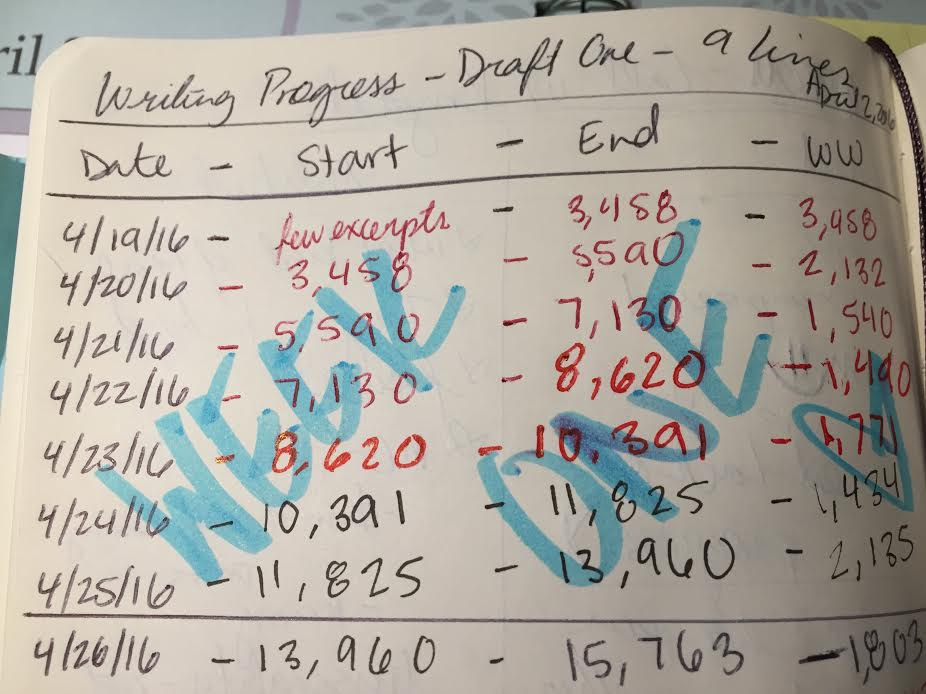 ril
Writing Progress - Draft One - 9 Lines
April 2, 2016
Date - Start - End - WW
4/19/16 - few excerpts - 3,458 - 3,458
4/20/16 - 3,458 - 5,590 - 2,132
4/21/16 - 5,590 - 7,130 - 1,540
4/22/16 - 7,130 - 8,620 - 1,490
4/23/16 - 8,620 - 10,391 - 1,771
4/24/16 - 10,391 - 11,825 - 1,434
4/25/16 - 11,825 - 13,960 - 2,135
4/26/16 - 13,960 - 15,763 - 1,803
WEEK ONE